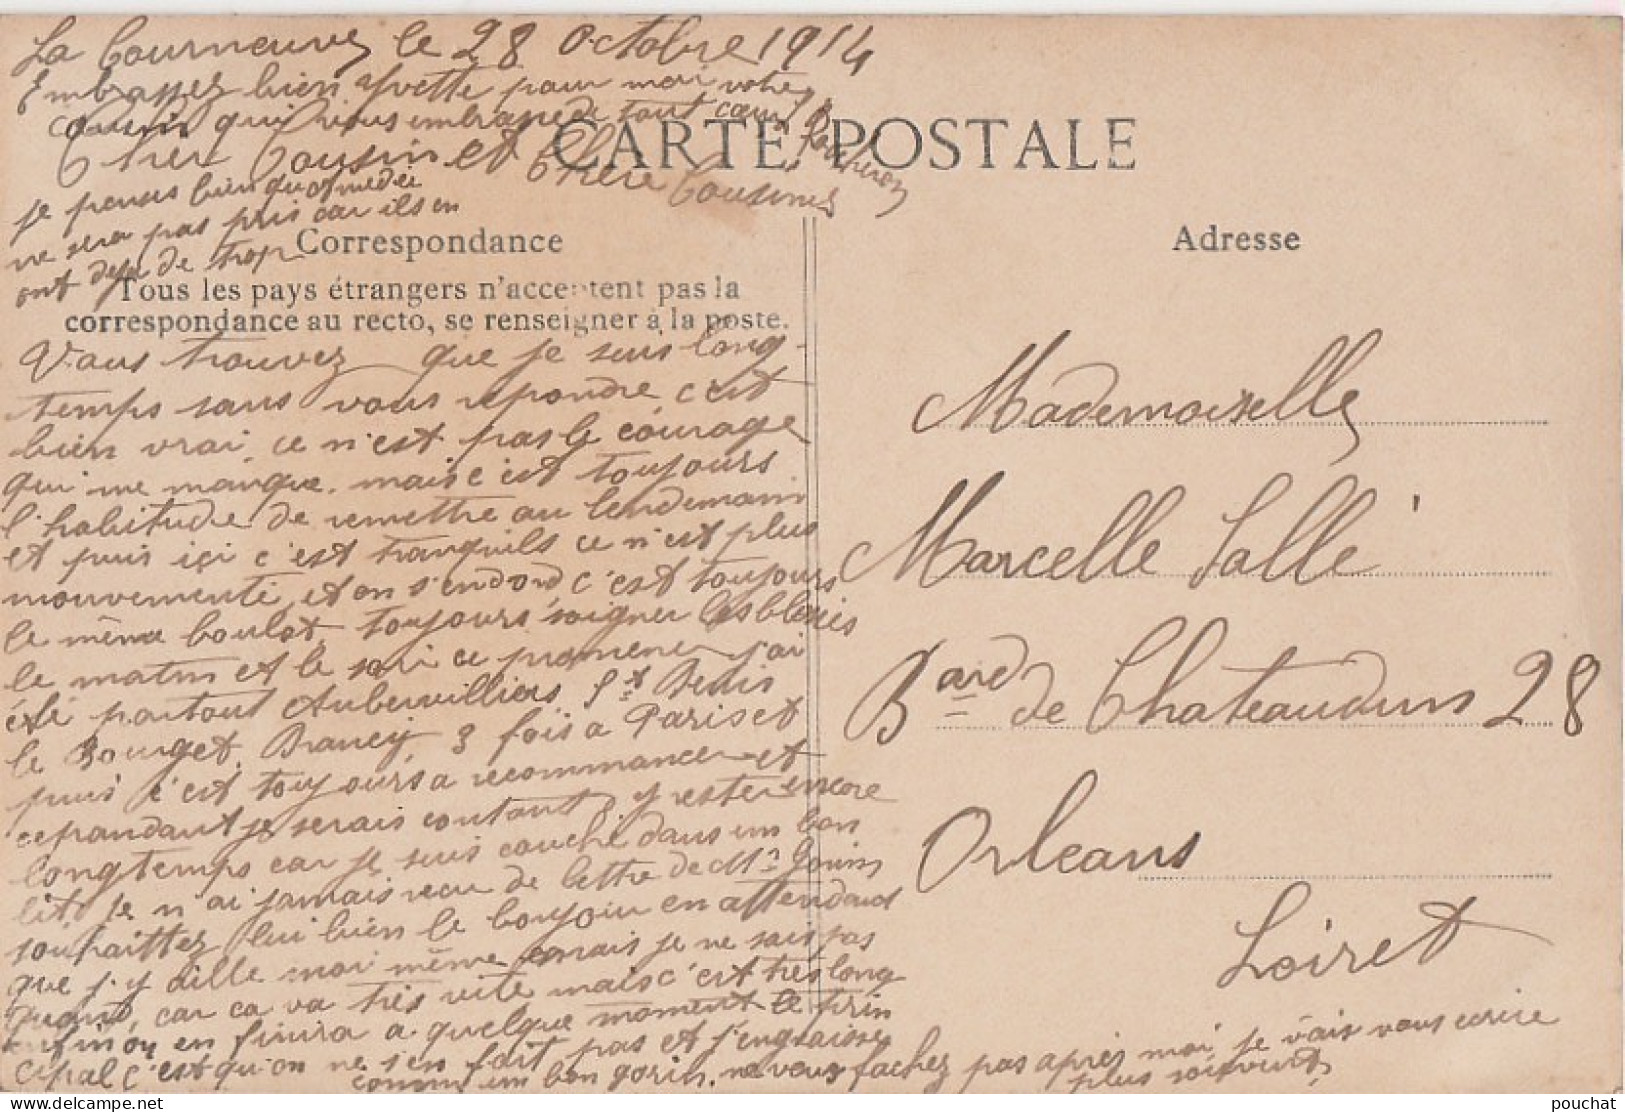 La Courneuve le 28 Octobre 1914
Embrassez bien Yvette pour moi votre
cousin qui vous embrasse de tout cœur
CARTE POSTALE
Cher Cousin et Chère Cousine
je penses bien qu'Amédée
ne sera pas pris car ils en
ont deja de trop
Correspondance
Tous les pays étrangers n'acceptent pas la
correspondance au recto, se renseigner à la poste.
Vous trouvez que je suis long-
temps sans vous repondre c'est
bien vrai ce n'est pas le courage
qui me manque. mais c'est toujours
l'habitude de remettre au lendemain
et puis içi c'est tranquils ce n'est plus
mouvementé et on s'endord, c'est toujours
le même boulot, toujours soigner les blessés
le matin et le soir ce promener j'ai
été partout Aubervilliers, St Denis
le Bourget, Drancy, 3 fois a Paris et
puis c'est toujours a recommancer et
cependant je serais contant d'y rester encore
longtemps car je suis couché dans un bon
lit, je n'ai jamais recu de lettre de Mr Gorin
souhaittez lui bien le bonjour en attendant
que j'y aille moi même mais je ne sais pas
quand, car ca va très vite mais c'est très long
enfin on en finira a quelque moment le prin
cipal c'est qu'on ne s'en fait pas et j'engraisse
comme un bon gorin. ne vous fachez pas après moi je vais vous ecrire
plus souvent,
Adresse
Mademoiselle
Marcelle Sallé
Bard de Chateaudun 28
Orleans
Loiret
pouchat